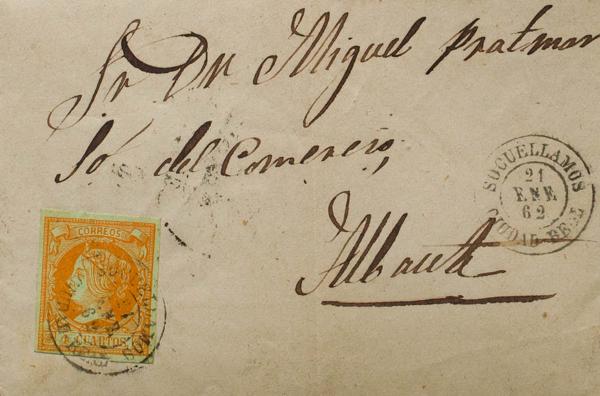 Sr Dn Miguel Pratmar
del Comercio,
Albacete
SOCUELLAMOS
21
ENE
62
CIUDAD-REAL
CORREOS
4 CUARTOS